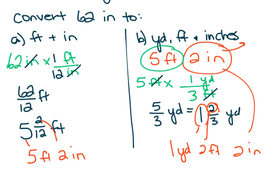 convert 62 in to:
a) ft + in
62 in × 1 ft / 12 in
62/12 ft
5 2/12 ft
5 ft 2 in
b) yd, ft + inches
5 ft 2 in
5 ft × 1 yd / 3 ft
5/3 yd = 1 2/3 yd
1 yd 2 ft 2 in